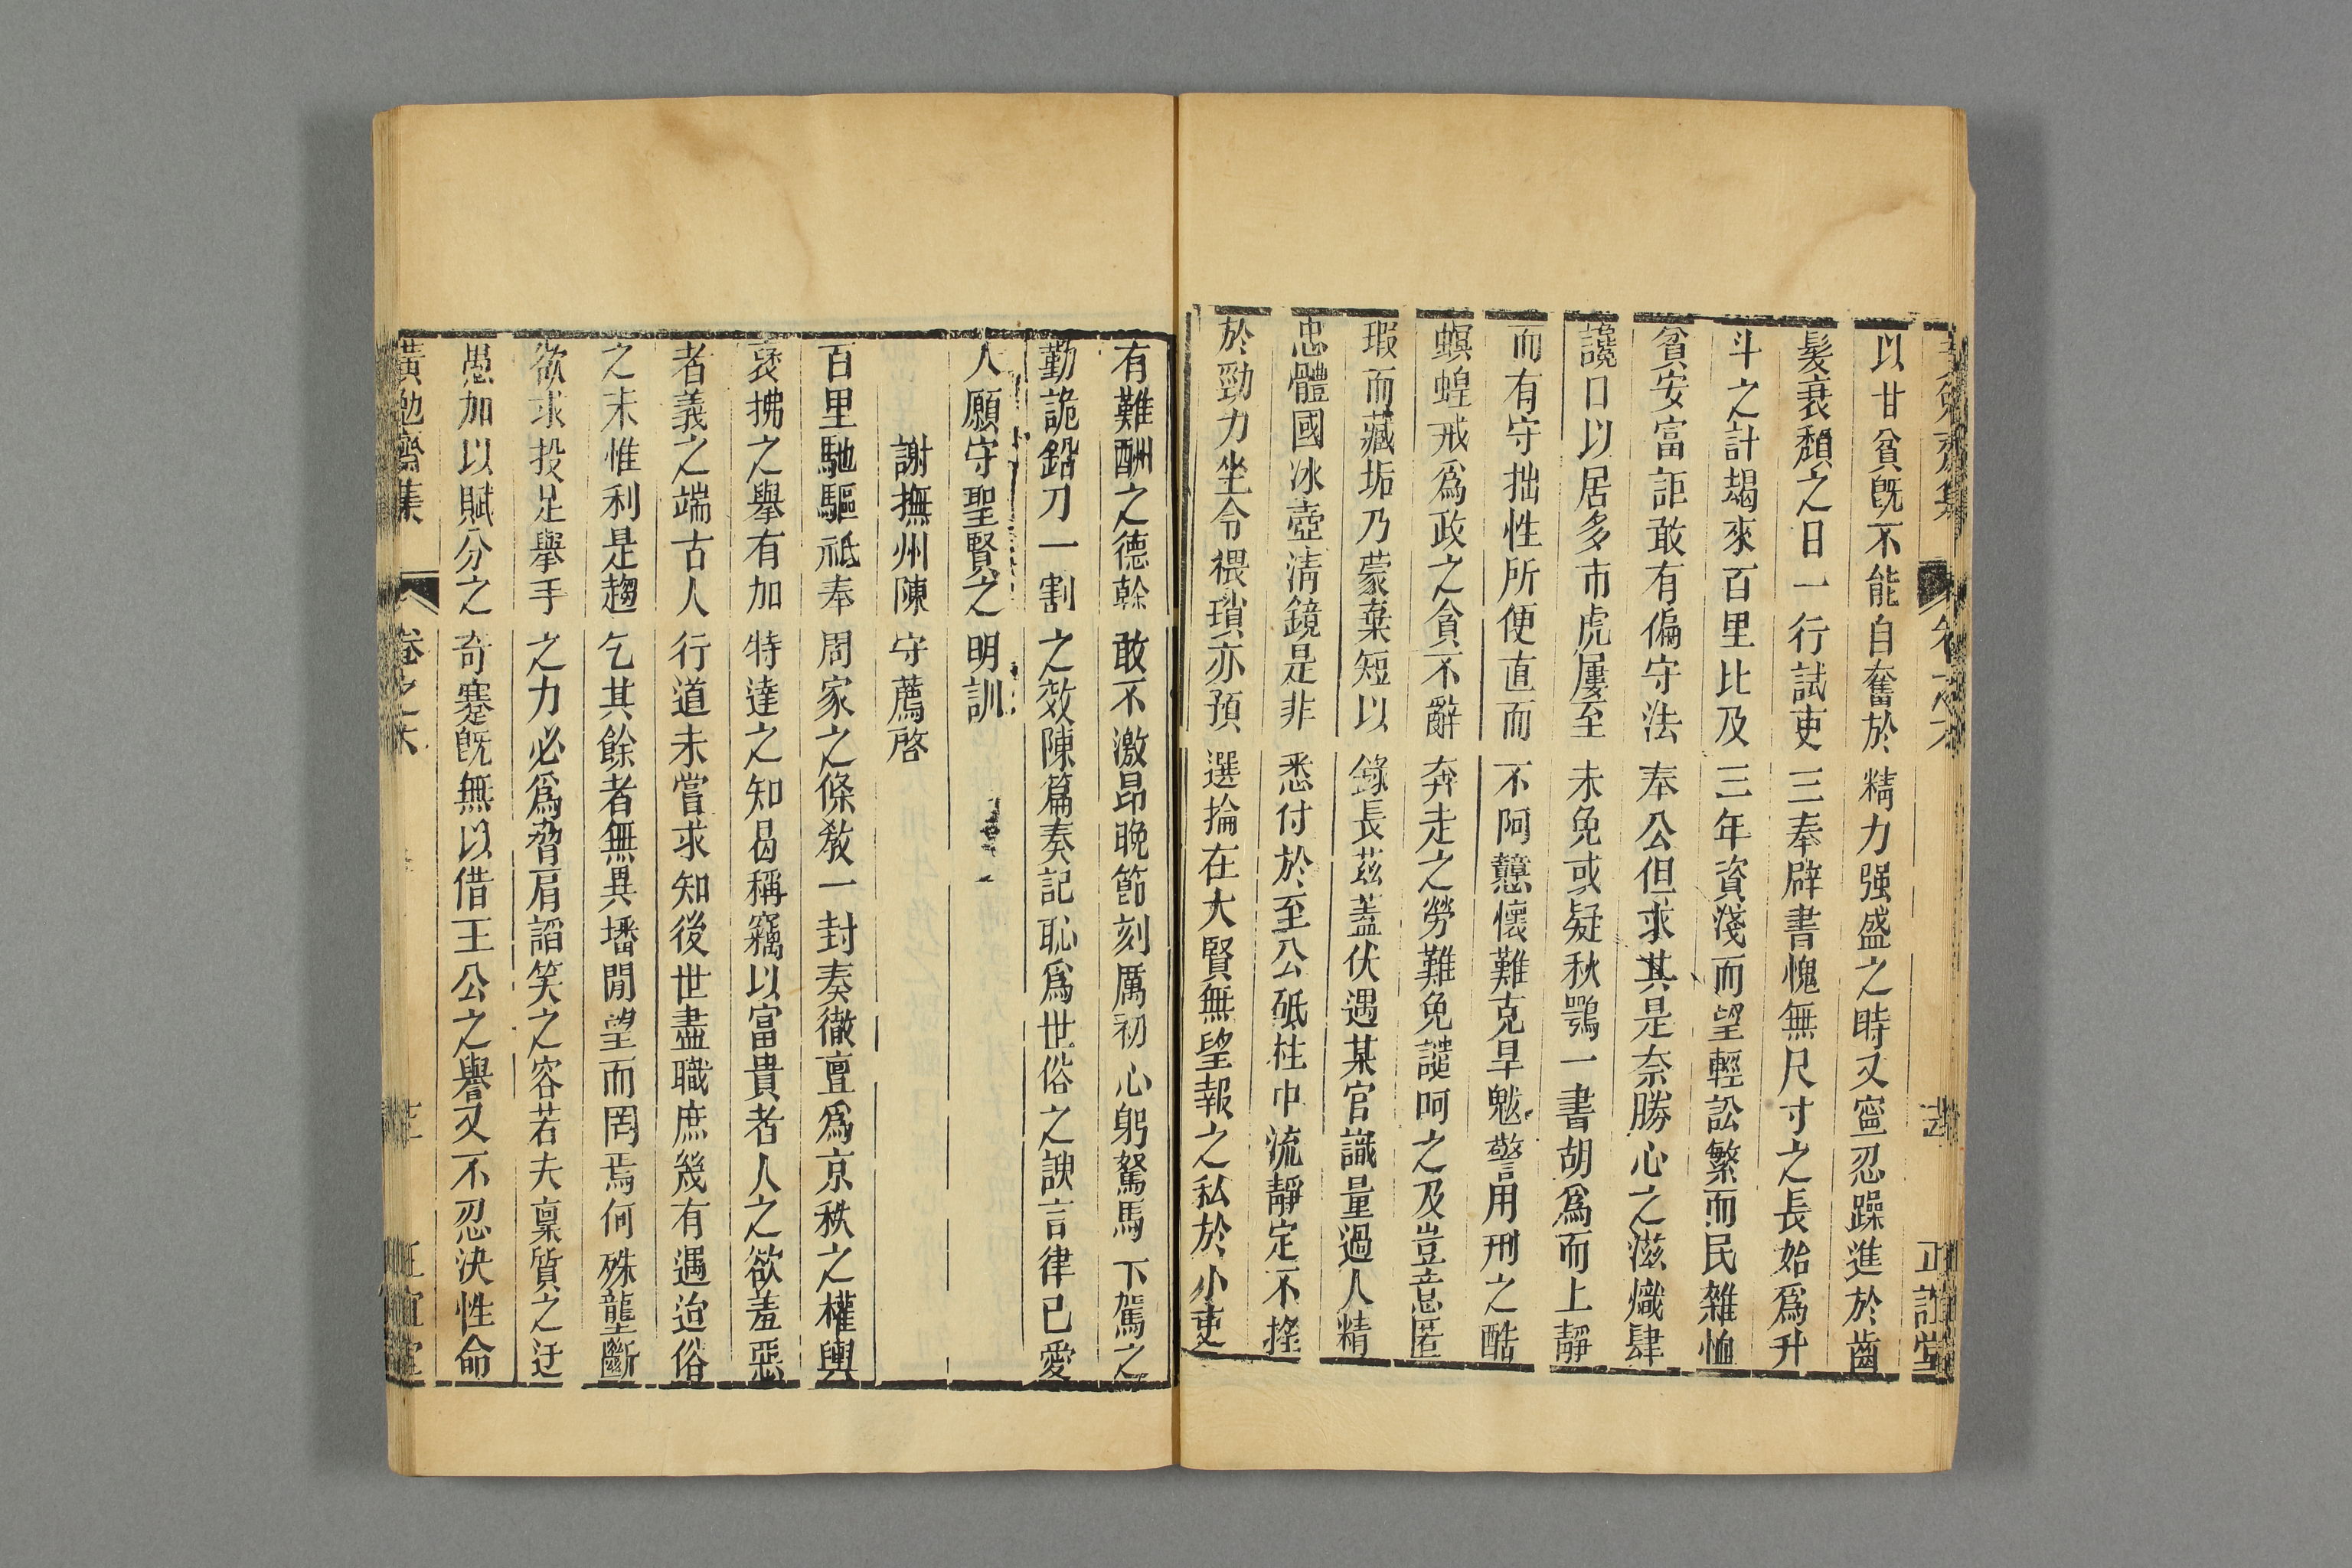 以甘貧旣不能自奮於精力强盛之時又寧忍躁進於齒
髮衰頹之日一行試吏三奉辟書愧無尺寸之長始爲升
斗之計朅來百里比及三年資淺而望輕訟繁而民雜恤
貧安富詎敢有偏守法奉公但求其是奈勝心之滋熾肆
讒口以居多市虎屢至未免或疑秋鶚一書胡爲而上靜
而有守拙性所便直而不阿戇懷難克旱魃警用刑之酷
螟蝗戒爲政之貪不辭奔走之勞難免譴呵之及豈意匿
瑕而藏垢乃蒙棄短以錄長茲蓋伏遇某官識量過人精
忠體國冰壺淸鏡是非悉付於至公砥柱中流靜定不搖
於勁力坐令猥瑣亦預選掄在大賢無望報之私於小吏
有難酬之德幹敢不激昂晚節刻厲初心躬駑馬下駕之
勤詭鉛刀一割之效陳篇奏記恥爲世俗之諛言律己愛
人願守聖賢之明訓
謝撫州陳守薦啓
百里馳驅祗奉周家之條教一封奏徹亶爲京秩之權輿
袞拂之舉有加特達之知曷稱竊以富貴者人之欲羞惡
者義之端古人行道未嘗求知後世盡職庶幾有遇迨俗
之末惟利是趨乞其餘者無異墦閒望而罔焉何殊龍斷
欲求投足舉手之力必爲脅肩諂笑之容若夫稟質之迂
愚加以賦分之奇蹇旣無以借王公之譽又不忍決性命
黃勉齋集　卷之六
正誼堂